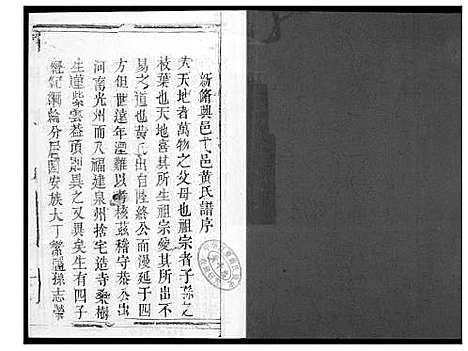 新脩興邑弋邑黃氏譜序
夫天地者萬物之父母也祖宗者子孫之
枝葉也天地喜其所生祖宗愛其所出不
易之道也黃氏出自陸終公而漫延于四
方但世遠年湮難以考核茲稽守恭公出
河南光州而入福建泉州捨宅造寺桑樹
生蓮紫雲蓋頂異之又異矣生有四子
經紀綸分居安族大丁繁孫志榮